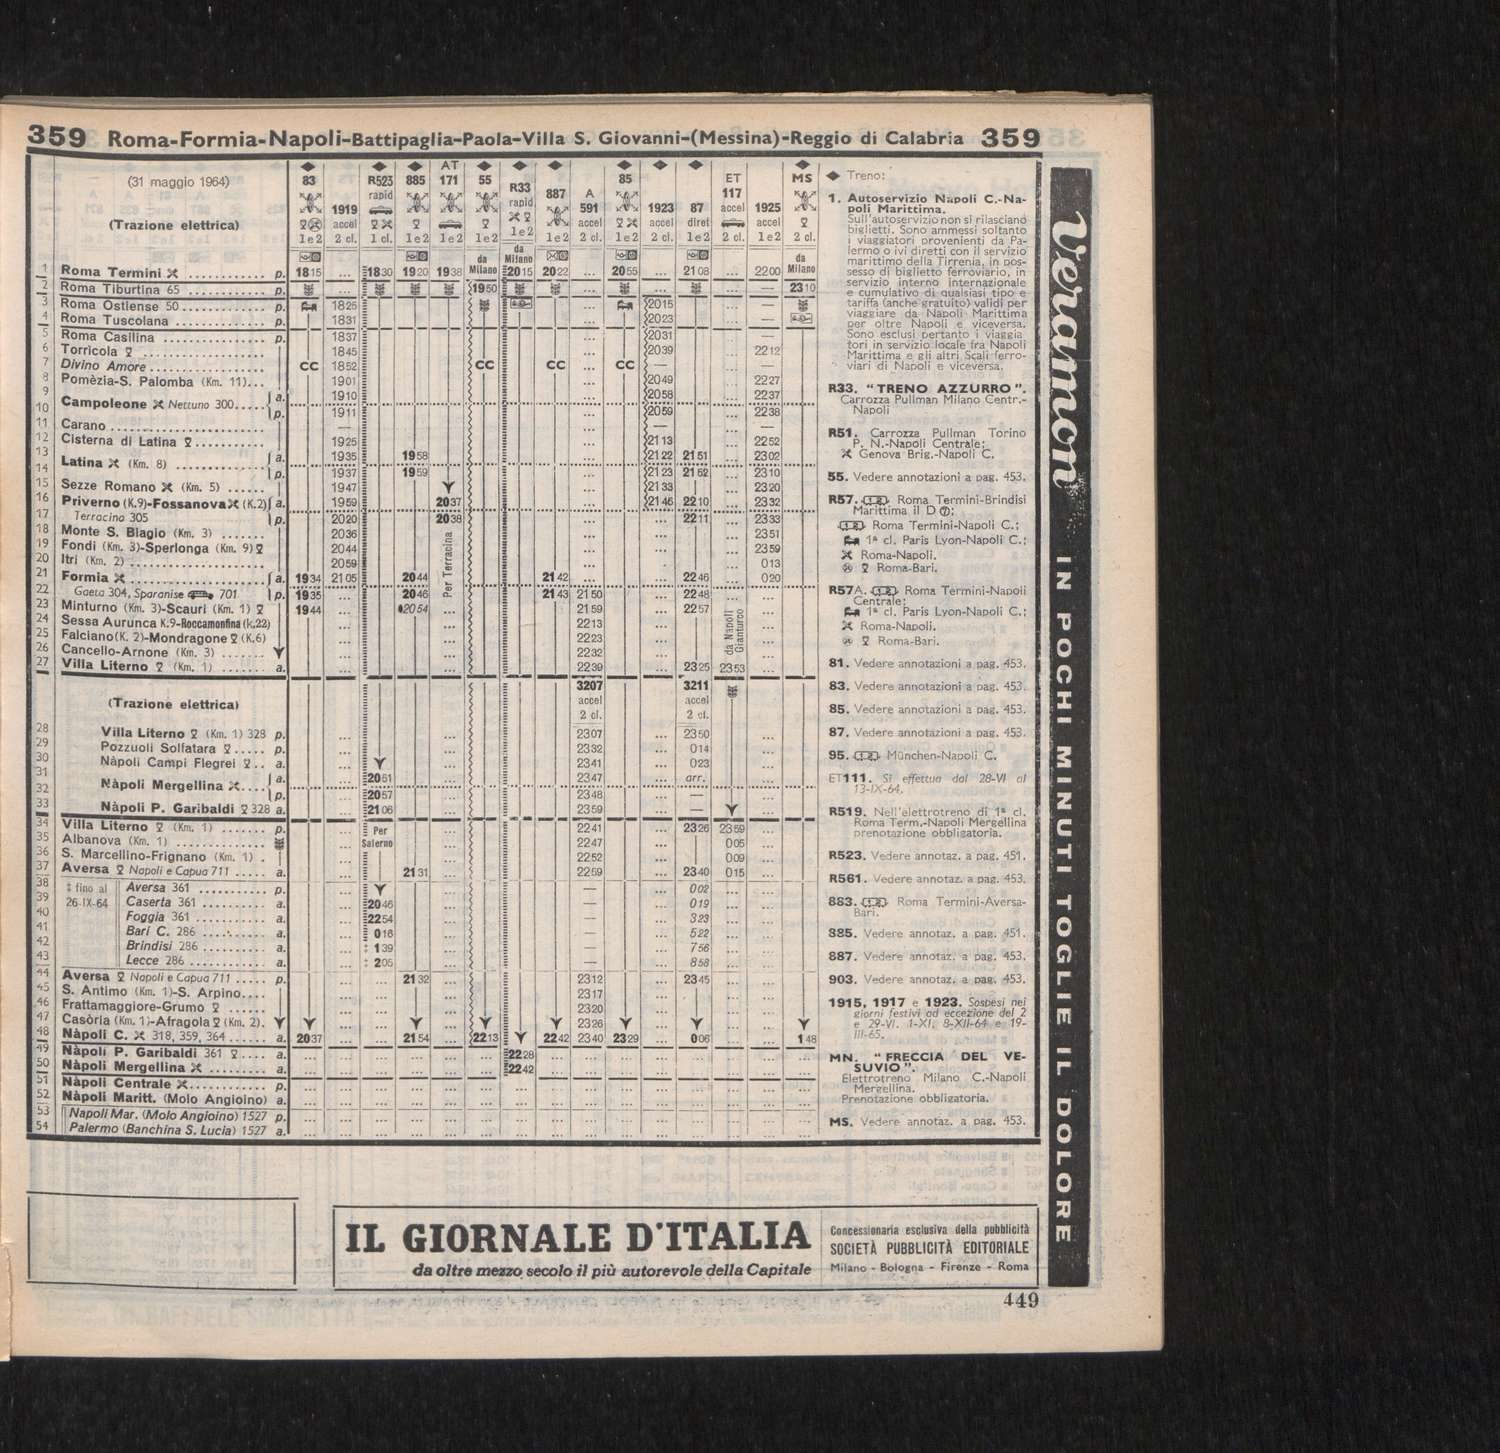 359 Roma-Formia-Napoli-Battipaglia-Paola-Villa S. Giovanni-(Messina)-Reggio di Calabria 359
(31 maggio 1964) 83 1919 R523 885 AT 171 55 R33 887 A 591 85 1923 87 ET 117 1925 MS
(Trazione elettrica) accel rapid rapid accel accel diret accel accel
1e2 2 cl. 1 cl. 1e2 1e2 1e2 1e2 1e2 2 cl. 1e2 2 cl. 1e2 2 cl. 1e2 2 cl.
da Milano da Milano da Milano
1 Roma Termini p. 1815 ... 1830 1920 1938 2015 2022 ... 2055 2108 ... 2200
2 Roma Tiburtina 65 p. ... 1950 ... — 2310
3 Roma Ostiense 50 p. 1825 ... 2015 ... —
4 Roma Tuscolana p. 1831 ... 2023 ... —
5 Roma Casilina p. 1837 ... 2031 ... —
6 Torricola 1845 ... 2039 ... 2212
7 Divino Amore CC 1852 CC CC ... CC — ... —
8 Pomèzia-S. Palomba (Km. 11) 1901 ... 2049 ... 2227
9 Campoleone Nettuno 300 a. 1910 ... 2058 ... 2237
10 p. 1911 ... 2059 ... 2238
11 Carano — ... — ... —
12 Cisterna di Latina 1925 ... 2113 ... 2252
13 Latina (Km. 8) a. 1935 1958 ... 2122 2151 ... 2302
14 p. 1937 1959 ... 2123 2152 ... 2310
15 Sezze Romano (Km. 5) 1947 ... 2133 ... 2320
16 Priverno (K.9)-Fossanova (K.2) a. 1959 2037 ... 2146 2210 ... 2332
17 Terracina 305 p. 2020 2038 ... 2211 ... 2333
18 Monte S. Biagio (Km. 3) 2036 ... 2351
19 Fondi (Km. 3)-Sperlonga (Km. 9) 2044 ... 2359
20 Itri (Km. 2) 2059 ... 013
21 Formia a. 1934 2105 2044 2142 ... 2246 ... 020
22 Gaeta 304, Sparanise 701 p. 1935 ... 2046 2143 2150 ... 2248 ...
23 Minturno (Km. 3)-Scauri (Km. 1) 1944 ... 2054 2159 ... 2257
24 Sessa Aurunca K.9-Roccamonfina (k.22) ... 2213
25 Falciano (K. 2)-Mondragone (K.6) ... 2223
26 Cancello-Arnone (Km. 3) ... 2232
27 Villa Literno (Km. 1) a. ... 2239 ... 2325 2353 ...
Per Terracina
da Napoli Gianturco
3207 3211
(Trazione elettrica) accel accel
2 cl. 2 cl.
28 Villa Literno (Km. 1) 328 p. 2307 ... 2350
29 Pozzuoli Solfatara p. 2332 ... 014
30 Nàpoli Campi Flegrei a. 2341 ... 023
31 Nàpoli Mergellina a. 2051 2347 ... arr.
32 p. 2057 2348 ... —
33 Nàpoli P. Garibaldi 328 a. 2106 2359 ... —
34 Villa Literno (Km. 1) p. ... Per Salerno 2241 ... 2326 2359
35 Albanova (Km. 1) ... 2247 ... 005
36 S. Marcellino-Frignano (Km. 1) ... 2252 ... 009
37 Aversa Napoli e Capua 711 a. ... 2131 2259 ... 2340 015
38 ‡ fino al 26-IX-64 Aversa 361 p. — ... 002
39 Caserta 361 a. 2046 — ... 019
40 Foggia 361 a. 2254 — ... 323
41 Bari C. 286 a. 016 — ... 522
42 Brindisi 286 a. ‡ 139 — ... 756
43 Lecce 286 a. ‡ 205 — ... 858
44 Aversa Napoli e Capua 711 p. ... 2132 2312 ... 2345
45 S. Antimo (Km. 1)-S. Arpino ... 2317
46 Frattamaggiore-Grumo ... 2320
47 Casòria (Km. 1)-Afragola (Km. 2) ... 2326
48 Nàpoli C. 318, 359, 364 a. 2037 ... 2154 2213 2242 2340 2329 ... 006 ... 148
49 Nàpoli P. Garibaldi 361 a. ... 2228 ...
50 Nàpoli Mergellina a. ... 2242 ...
51 Nàpoli Centrale p. ...
52 Nàpoli Maritt. (Molo Angioino) a. ...
53 Napoli Mar. (Molo Angioino) 1527 p. ...
54 Palermo (Banchina S. Lucia) 1527 a. ...
◆ Treno:
1. Autoservizio Napoli C.-Na-
poli Marittima.
Sull'autoservizio non si rilasciano
biglietti. Sono ammessi soltanto
i viaggiatori provenienti da Pa-
lermo o ivi diretti con il servizio
marittimo della Tirrenia, in pos-
sesso di biglietto ferroviario, in
servizio interno internazionale
e cumulativo di qualsiasi tipo e
tariffa (anche gratuito) validi per
viaggiare da Napoli Marittima
per oltre Napoli e viceversa.
Sono esclusi pertanto i viaggia
tori in servizio locale fra Napoli
Marittima e gli altri Scali ferro-
viari di Napoli e viceversa.
R33. "TRENO AZZURRO".
Carrozza Pullman Milano Centr.-
Napoli
R51. Carrozza Pullman Torino
P. N.-Napoli Centrale;
Genova Brig.-Napoli C.
55. Vedere annotazioni a pag. 453.
R57. Roma Termini-Brindisi
Marittima il D ⑦;
Roma Termini-Napoli C.;
1ª cl. Paris Lyon-Napoli C.;
Roma-Napoli.
Roma-Bari.
R57A. Roma Termini-Napoli
Centrale;
1ª cl. Paris Lyon-Napoli C.;
Roma-Napoli.
Roma-Bari.
81. Vedere annotazioni a pag. 453.
83. Vedere annotazioni a pag. 453.
85. Vedere annotazioni a pag. 453.
87. Vedere annotazioni a pag. 453.
95. München-Napoli C.
ET111. Si effettua dal 28-VI al
13-IX-64.
R519. Nell'elettrotreno di 1ª cl.
Roma Term.-Napoli Mergellina
prenotazione obbligatoria.
R523. Vedere annotaz. a pag. 451.
R561. Vedere annotaz. a pag. 453.
883. Roma Termini-Aversa-
Bari.
885. Vedere annotaz. a pag. 451.
887. Vedere annotaz. a pag. 453.
903. Vedere annotaz. a pag. 453.
1915, 1917 e 1923. Sospesi nei
giorni festivi ad eccezione del 2
e 29-VI, 1-XI, 8-XII-64 e 19-
III-65.
MN. "FRECCIA DEL VE-
SUVIO".
Elettrotreno Milano C.-Napoli
Mergellina.
Prenotazione obbligatoria.
MS. Vedere annotaz. a pag. 453.
Veramon IN POCHI MINUTI TOGLIE IL DOLORE
IL GIORNALE D'ITALIA
da oltre mezzo secolo il più autorevole della Capitale
Concessionaria esclusiva della pubblicità
SOCIETÀ PUBBLICITÀ EDITORIALE
Milano - Bologna - Firenze - Roma
449